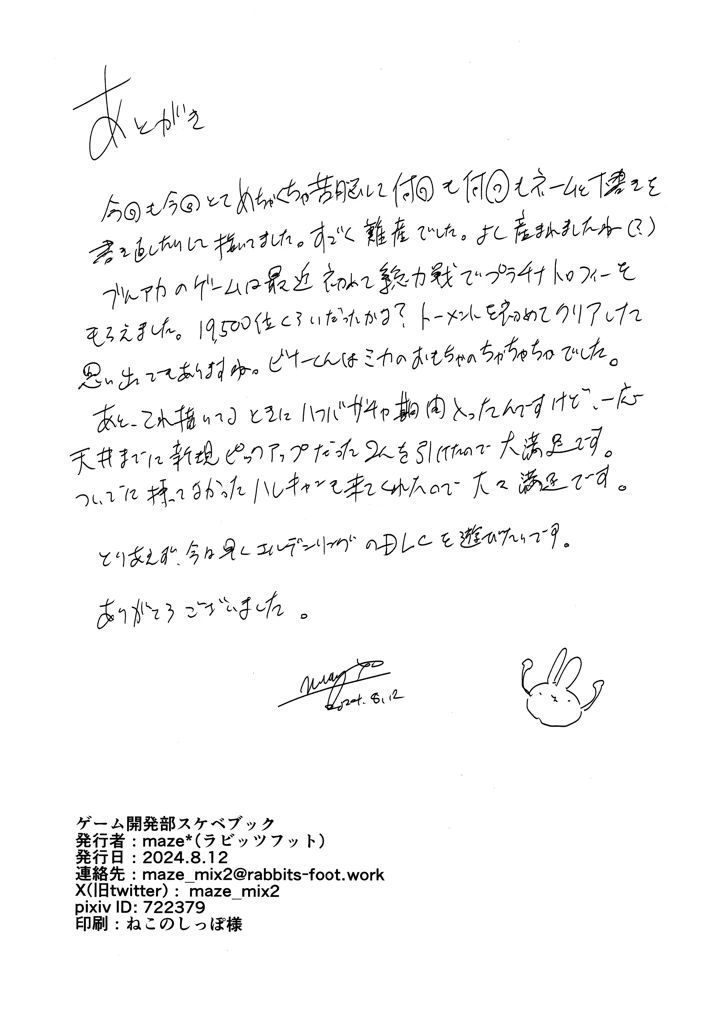 あとがき
今回も今回とてめちゃくちゃ苦悩して何回も何回もネームと下書きを
書き直したりして描いてました。すごく難産でした。よし産まれましたね(?)
ブルアカのゲームは最近初めて総力戦でプラチナトロフィーを
もらえました。19,500位くらいだったかな?トーメントを初めてクリアしたて
思い出でもありますね。ビナーくんはミカのおもちゃのちゃちゃちゃでした。
あと、これ描いてるときにハフバガチャ期間入ったんですけど、一応
天井までに新規ピックアップだった2人を引けたので大満足です。
ついでに持ってなかったハレキャンも来てくれたので大々満足です。
とりあえず、今は早くエルデンリングのDLCを遊びたいです。
ありがとうございました。
2024.8.12
ゲーム開発部スケベブック
発行者:maze*(ラビッツフット)
発行日:2024.8.12
連絡先:maze_mix2@rabbits-foot.work
X(旧twitter):maze_mix2
pixiv ID: 722379
印刷:ねこのしっぽ様